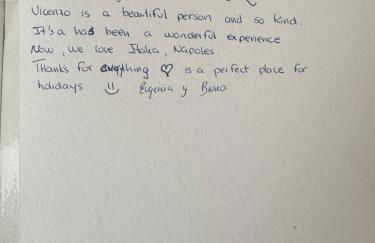 Vicenzo is a beautiful person and so kind.
It's a has been a wonderful experience
Now, we love Italia, Napoles.
Thanks for everything ♡ is a perfect place for
holidays :) Eugenia y Bruno